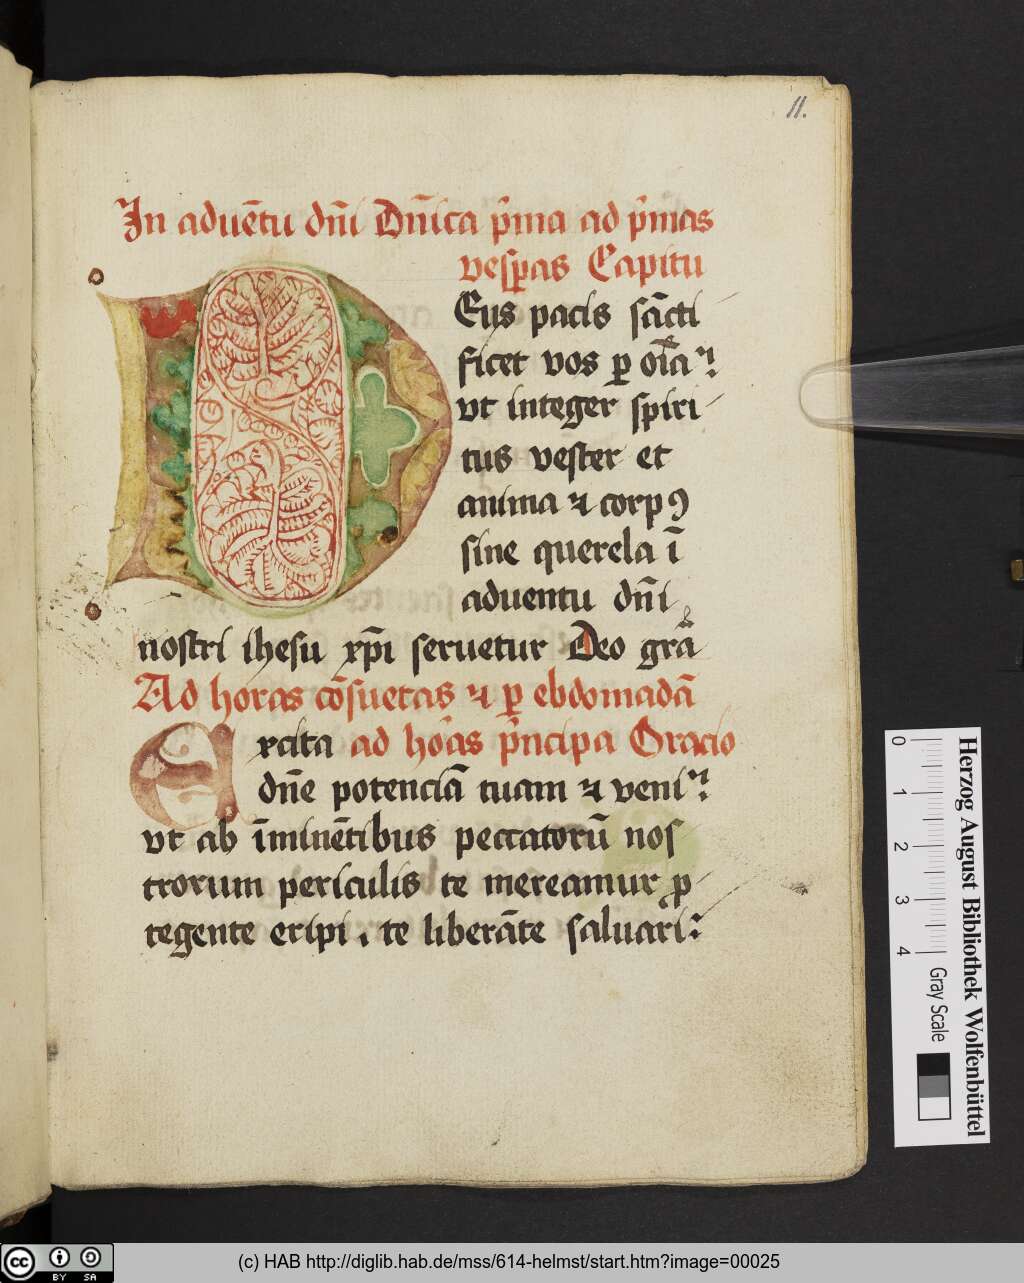 11.
In aduētu dn̄i Dn̄ica p̄ma ad p̄mas
vesꝑas Capitu
DEus pacis sācti
ficet vos ꝑ oīa
vt integer spiri
tus vester et
anima ⁊ corpꝰ
sine querela ī
aduentu dn̄i
nostri ihesu xp̄i seruetur Deo grā
Ad horas cōsuetas ⁊ ꝑ ebdomadā
Excita ad hōas p̄ncipa Oracio
dn̄e potenciā tuam ⁊ veni
vt ab īminētibus peccatorū nos
trorum periculis te mereamur ꝓ
tegente eripi . te liberāte saluari
0 1 2 3 4
Gray Scale
Herzog August Bibliothek Wolfenbüttel
cc BY SA
(c) HAB http://diglib.hab.de/mss/614-helmst/start.htm?image=00025